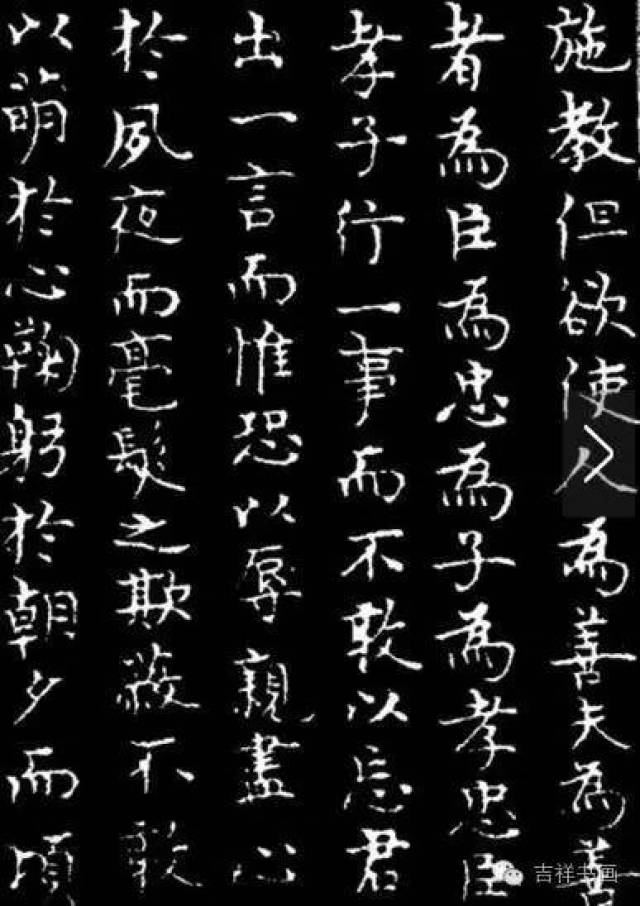 施教但欲使人為善夫為善
者為臣為忠為子為孝忠臣
孝子行一事而不敢以忘君
出一言而惟恐以辱親盡心
於夙夜而毫髮之欺蔽不敢
以萌於心鞠躬於朝夕而頃
吉祥书画